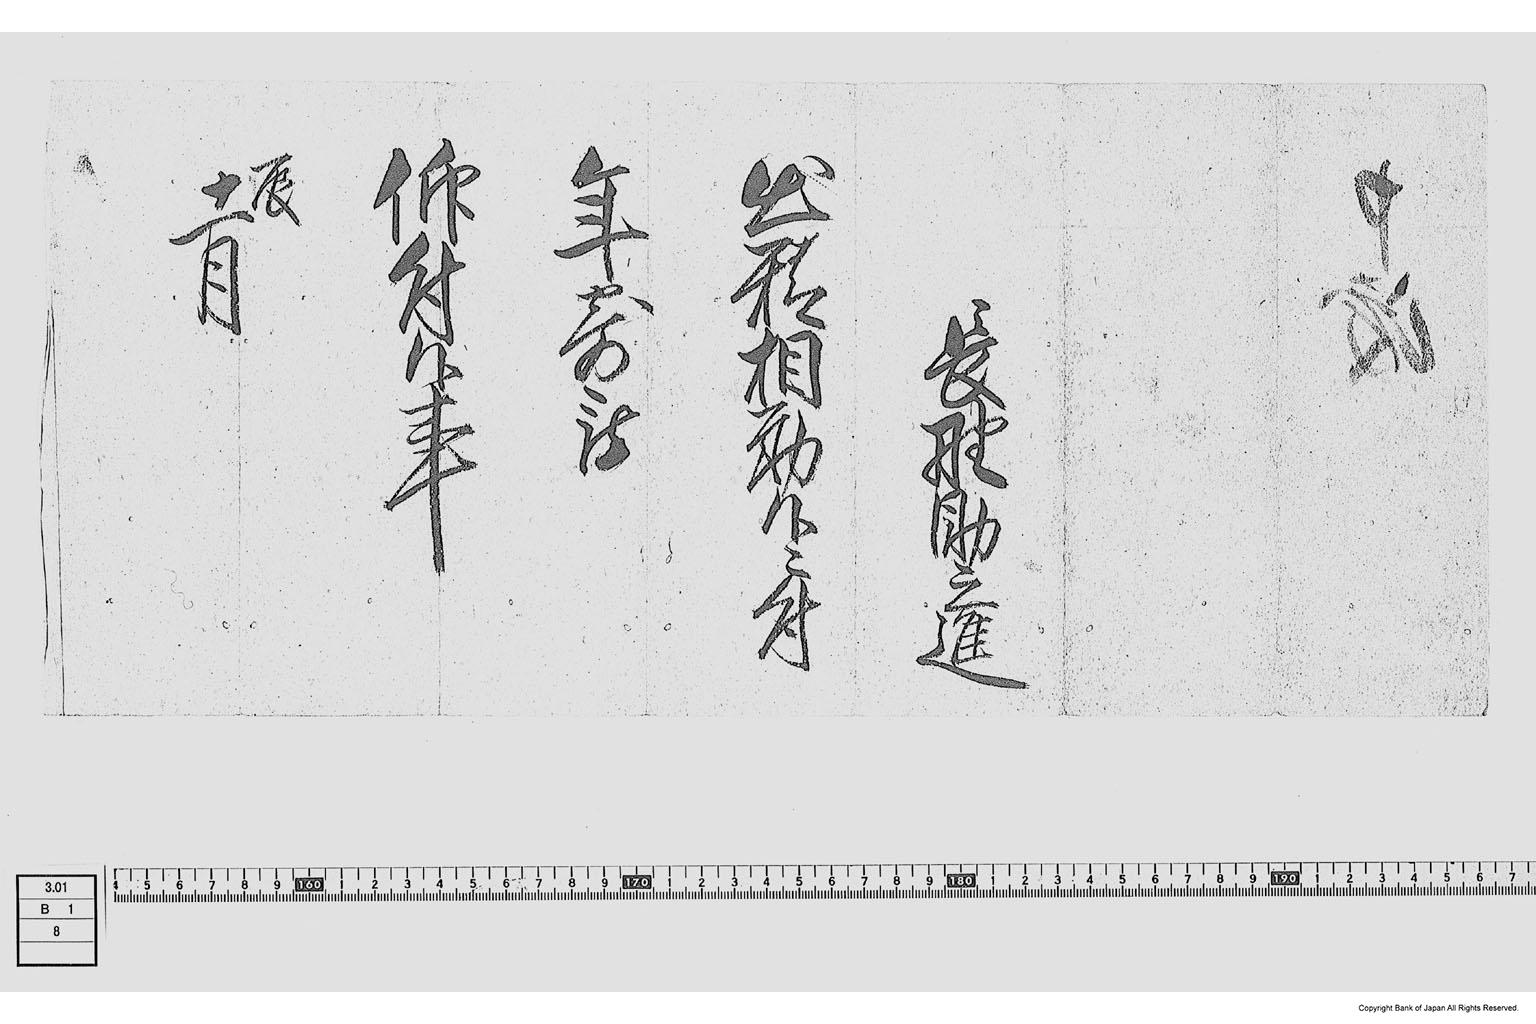 長野助之進
出精相勤候ニ付
年寄話
仰付候事
辰
十一月
3.01
B 1
8
4 5 6 7 8 9 160 1 2 3 4 5 6 7 8 9 170 1 2 3 4 5 6 7 8 9 180 1 2 3 4 5 6 7 8 9 190 1 2 3 4 5 6 7
Copyright Bank of Japan All Rights Reserved.